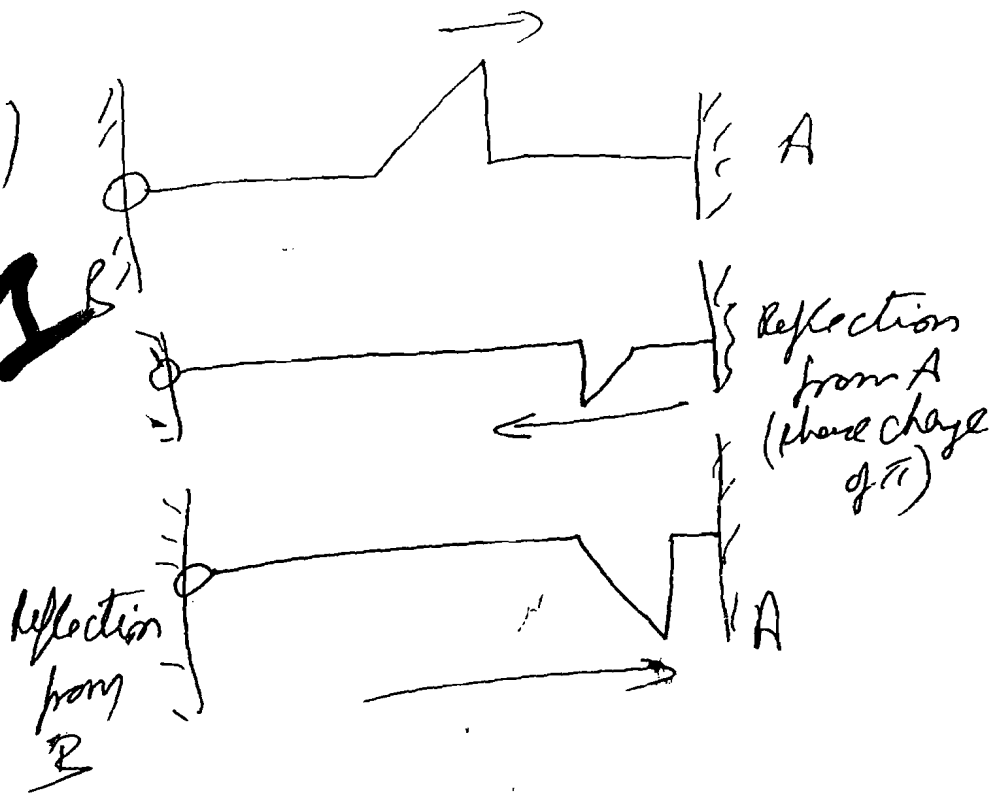 )
A
I
B
Reflection
from A
(phase change
of π)
Reflection
from
B
A